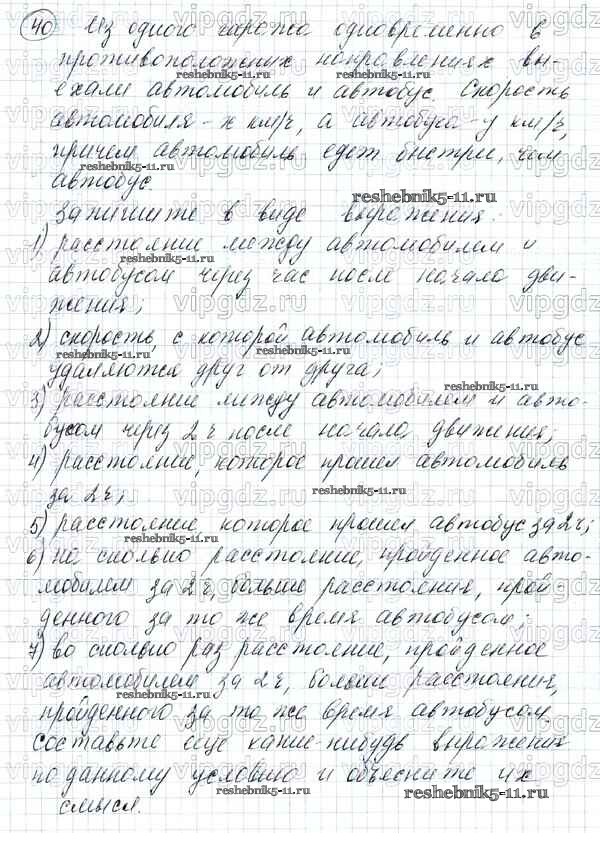 40) Из одного гаража одновременно в
противоположных направлениях вы-
ехали автомобиль и автобус. Скорость
автомобиля - x км/ч, а автобуса - y км/ч,
причем автомобиль едет быстрей, чем
автобус.
Запишите в виде выражения:
1) расстояние между автомобилем и
автобусом через час после начала дви-
жения;
2) скорость, с которой автомобиль и автобус
удаляются друг от друга;
3) расстояние между автомобилем и авто-
бусом через 2 ч после начала движения;
4) расстояние, которое прошел автомобиль
за 2 ч;
5) расстояние, которое прошел автобус за 2 ч;
6) на сколько расстояние, пройденное авто-
мобилем за 2 ч, больше расстояния, прой-
денного за то же время автобусом;
7) во сколько раз расстояние, пройденное
автомобилем за 2 ч, больше расстояния,
пройденного за то же время автобусом.
Составьте еще какие-нибудь выражения
по данному условию и объясните их
смысл.
vipgdz.ru
reshebnik5-11.ru